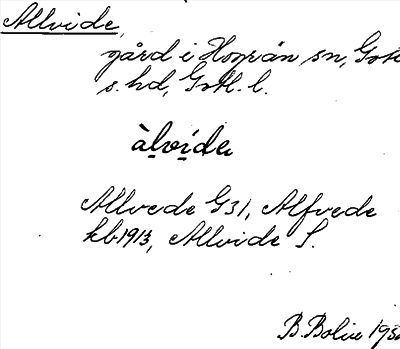 Allvide,
gård i Hogrän sn, Gotl.
s. hd, Gotl. l.
àlvide
Allvede G31, Alfvede
kb 1913, Allvide S.
B. Bolin